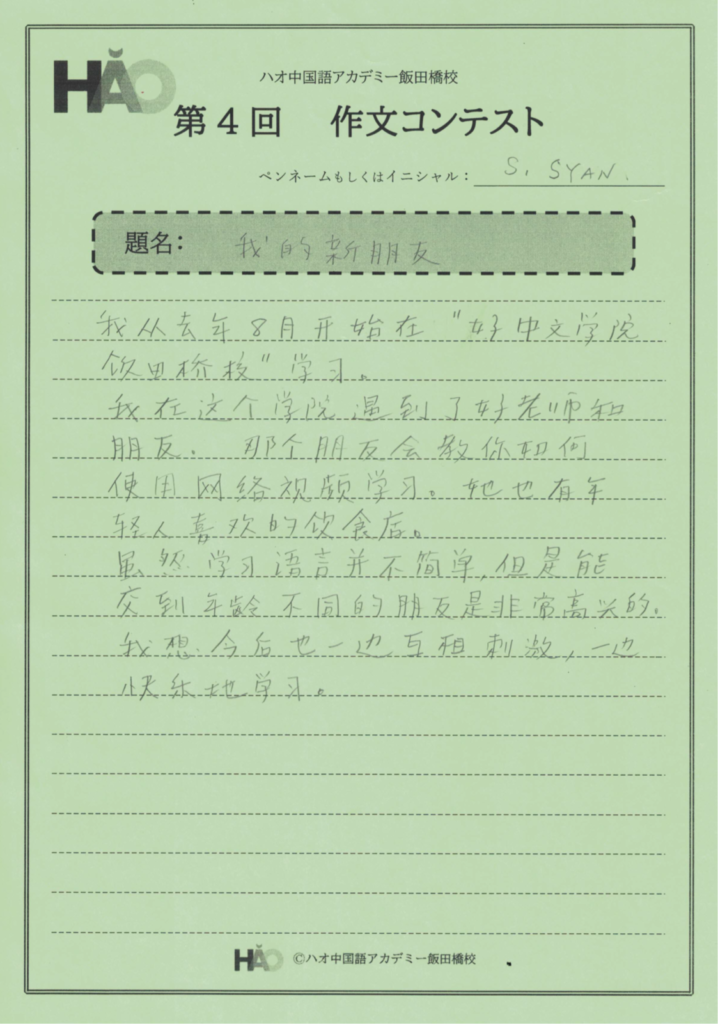 HǍO
ハオ中国語アカデミー飯田橋校
第4回 作文コンテスト
ペンネームもしくはイニシャル: S. SYAN.
題名: 我的新朋友
我从去年8月开始在“好中文学院
饮田桥校”学习。
我在这个学院遇到了好老师和
朋友. 那个朋友会教你如何
使用网络视频学习。她也有年
轻人喜欢的饮食店。
虽然学习语言并不简单,但是能
交到年龄不同的朋友是非常高兴的.
我想今后也一边互相刺激,一边
快乐地学习。
HǍO ©ハオ中国語アカデミー飯田橋校